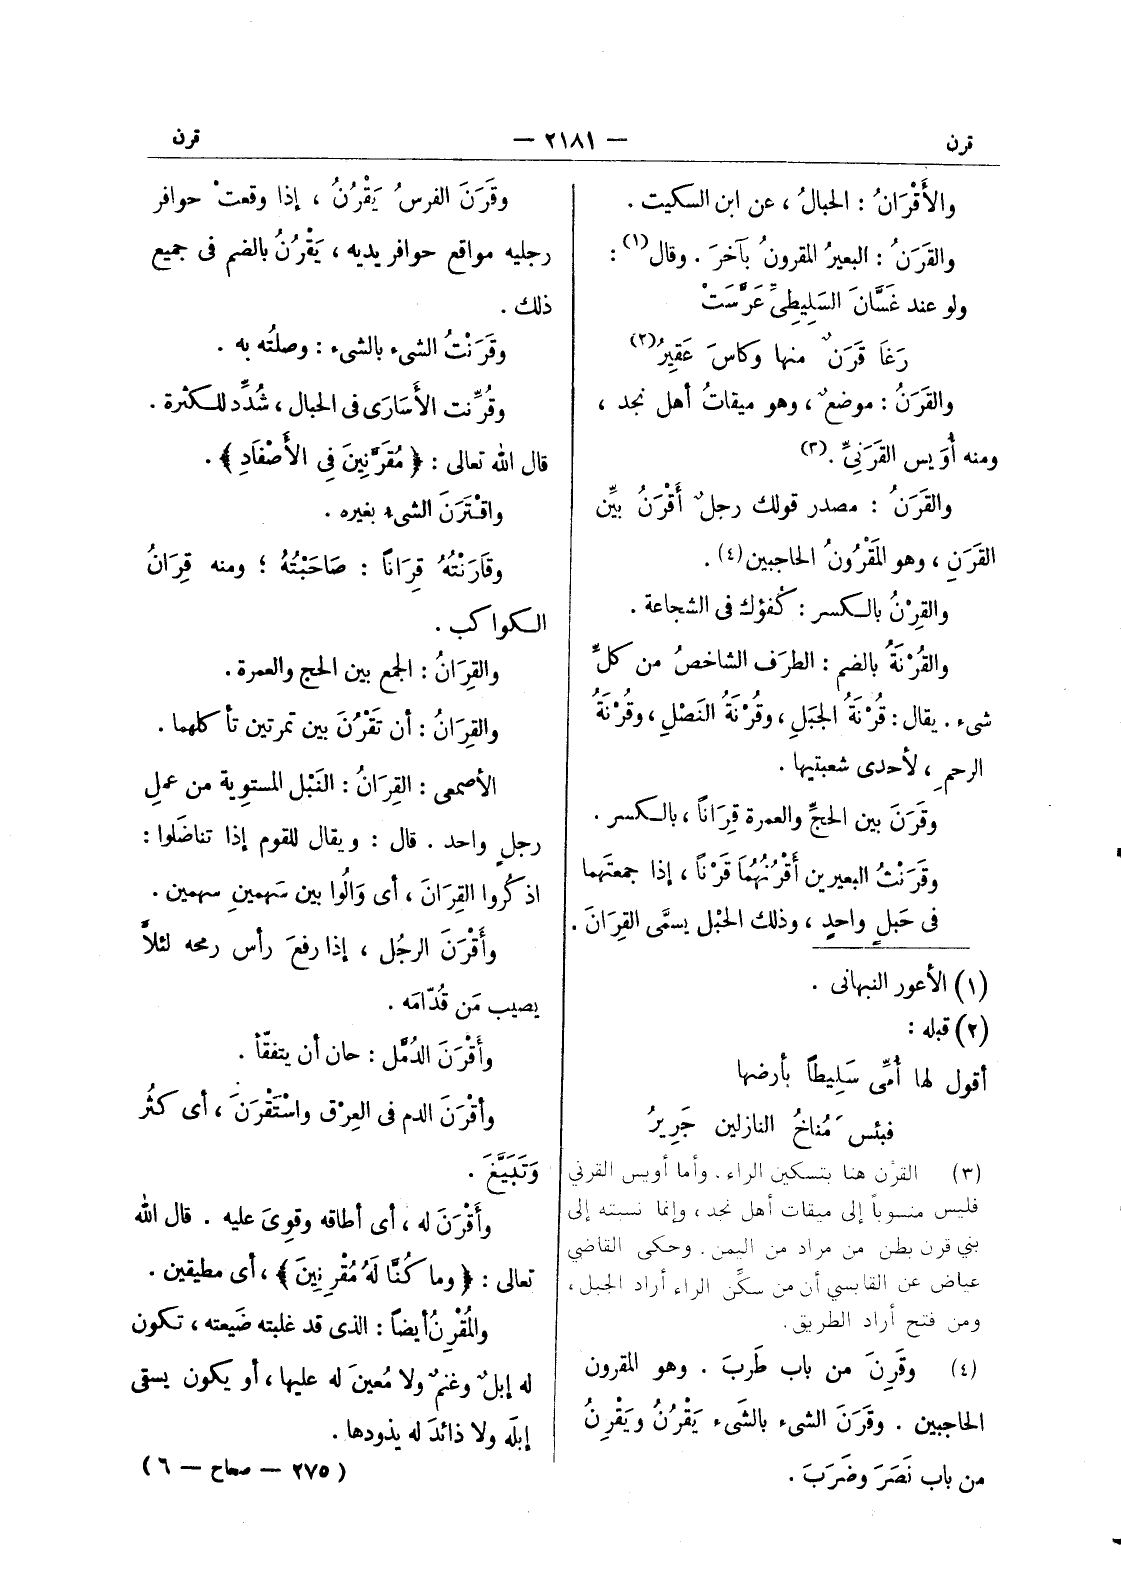 قرن — ٢١٨١ — قرن
والأَقْرَانُ : الحبالُ ، عن ابن السكيت .
والقَرَنُ : البعيرُ المقرونُ بآخرَ . وقال(١) :
ولو عند غَسَّانَ السَلِيطِىِّ عَرَّسَتْ
رَغَا قَرَنٌ منها وكاسَ عَقِيرُ(٢)
والقَرَنُ : موضعٌ ، وهو ميقاتُ أهل نجد ،
ومنه أُوَيس القَرَنِىِّ .(٣)
والقَرَنُ : مصدر قولك رجلٌ أَقْرَنُ بيِّن
القَرَنِ ، وهو المَقْرُونُ الحاجبين(٤) .
والقِرْنُ بالكسر : كُفؤك فى الشجاعة .
والقُرْنَةُ بالضم : الطرَف الشاخصُ من كلِّ
شىء . يقال : قُرْنَةُ الجَبَلِ ، وقُرْنَةُ النَصْلِ ، وقُرْنَةُ
الرحمِ ، لأحدى شعبتيها .
وقَرَنَ بين الحجِّ والعمرة قِرَاناً ، بالكسر .
وقَرَنْتُ البعيرين أَقْرُنُهُمَا قَرْناً ، إذا جمعتَهما
فى حَبلٍ واحدٍ ، وذلك الحَبْل يسمَّى القِرَانَ .
(١) الأعور النبهانى .
(٢) قبله :
أقول لها أُمِّى سَلِيطاً بأرضها
فبئس مُناخُ النازلين جَرِيرُ
(٣) القرْن هنا بتسكين الراء . وأما أويس القرني
فليس منسوباً إلى ميقات أهل نجد ، وإنما نسبته إلى
بني قرن بطن من مراد من اليمن . وحكى القاضي
عياض عن القابسي أن من سكِّن الراء أراد الجبل ،
ومن فتح أراد الطريق .
(٤) وقَرِنَ من باب طَرِبَ . وهو المقرون
الحاجبين . وقَرَنَ الشىء بالشَىء يَقْرُنُ ويَقْرِنُ
من باب نَصَرَ وضَرَبَ .
وقَرَنَ الفرسُ يَقْرُنُ ، إذا وقعتْ حوافر
رجليه مواقع حوافر يديه ، يَقْرُنُ بالضم فى جميع
ذلك .
وقَرَنْتُ الشىء بالشىء : وصلتُه به .
وقُرِّنت الأَسَارَى فى الحبال ، شُدِّد للكثرة .
قال الله تعالى : ﴿ مُقَرَّنِينَ فِى الأَصْفَادِ ﴾ .
واقْتَرَنَ الشىء بغيره .
وقَارَنْتُهُ قِرَاناً : صَاحَبْتُهُ ؛ ومنه قِرَانُ
الكواكب .
والقِرَانُ : الجمع بين الحج والعمرة .
والقِرَانُ : أن تَقْرُنَ بين تمرتين تأكلهما .
الأصمعى : القِرَانُ : النَبْل المستوِية من عملِ
رجلٍ واحد . قال : ويقال للقوم إذا تناضَلوا :
اذكُروا القِرَانَ ، أى وَالُوا بين سَهمينِ سهمين .
وأَقْرَنَ الرجُل ، إذا رفعَ رأس رمحه لئلاَّ
يصيب مَن قُدّامَه .
وأَقْرَنَ الدُمَّل : حان أن يتفقّأ .
وأقْرَنَ الدم فى العِرْق واسْتَقْرَنَ ، أى كثُر
وَتَبَيَّغَ .
وأَقْرَنَ له ، أى أطاقه وقوِىَ عليه . قال الله
تعالى : ﴿ وما كُنَّا لَهُ مُقْرِنِينَ ﴾ ، أى مطيقين .
والمُقْرِنُ أيضاً : الذى قد غلبته ضَيعته ، تكون
له إبلٌ وغنمٌ ولا مُعينَ له عليها ، أو يكون يسقى
إبلَه ولا ذائدَ له يذودها .
( ٢٧٥ — صحاح — ٦ )